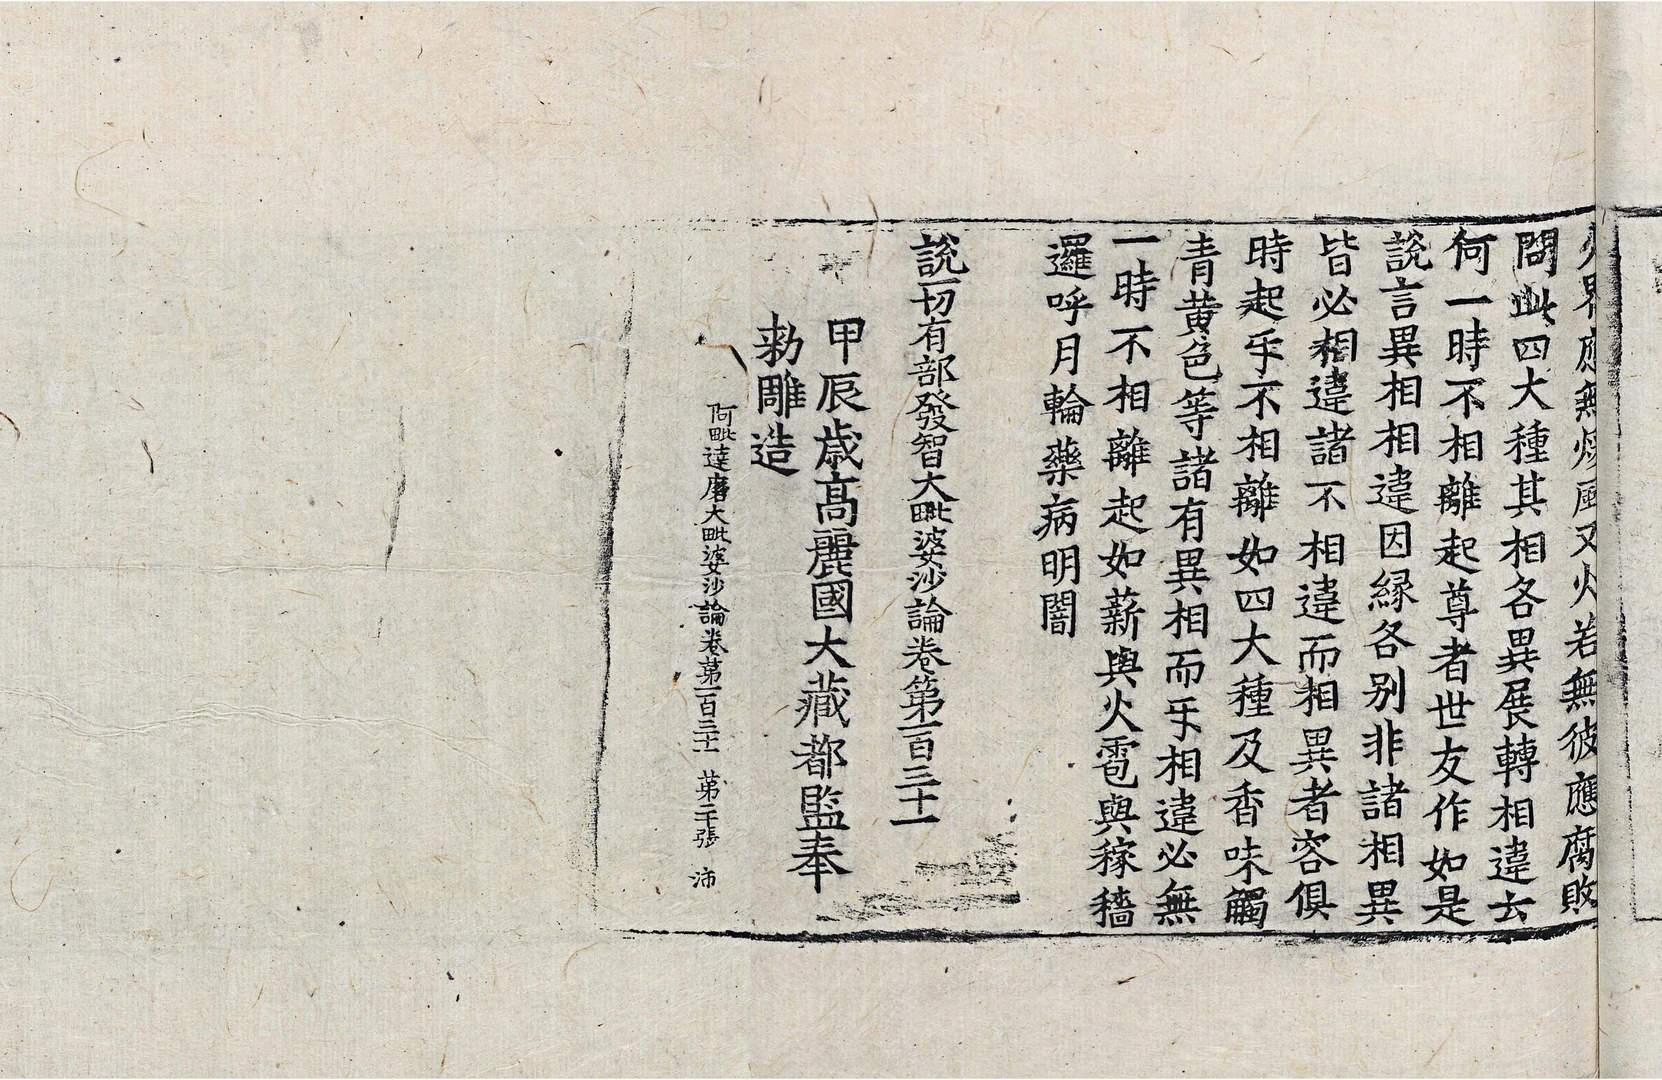 火界應無煖風又火若無彼應腐敗
問此四大種其相各異展轉相違云
何一時不相離起尊者世友作如是
說言異相相違因緣各別非諸相異
皆必相違諸不相違而相異者容俱
時起乎不相離如四大種及香味觸
青黃色等諸有異相而乎相違必無
一時不相離起如薪與火雹與稼穡
邏呼月輪藥病明闇
說一切有部發智大毗婆沙論卷第一百三十一
甲辰歲高麗國大藏都監奉
勑雕造
阿毗達磨大毗婆沙論卷第一百三十一 第二十張 沛